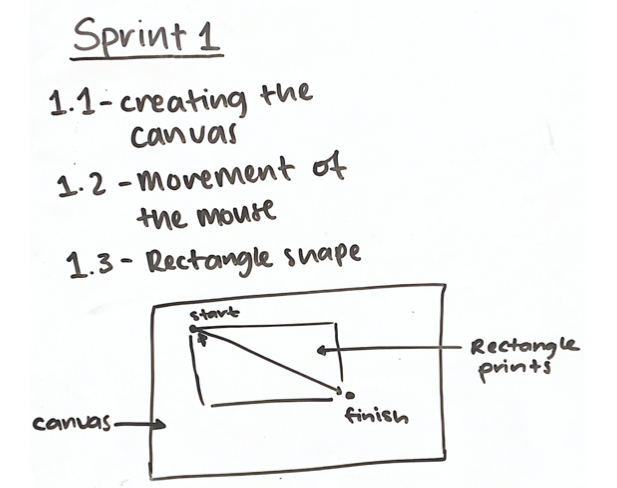 Sprint 1
1.1 - creating the
canvas
1.2 - Movement of
the mouse
1.3 - Rectangle shape
start
Rectangle
prints
canvas
finish